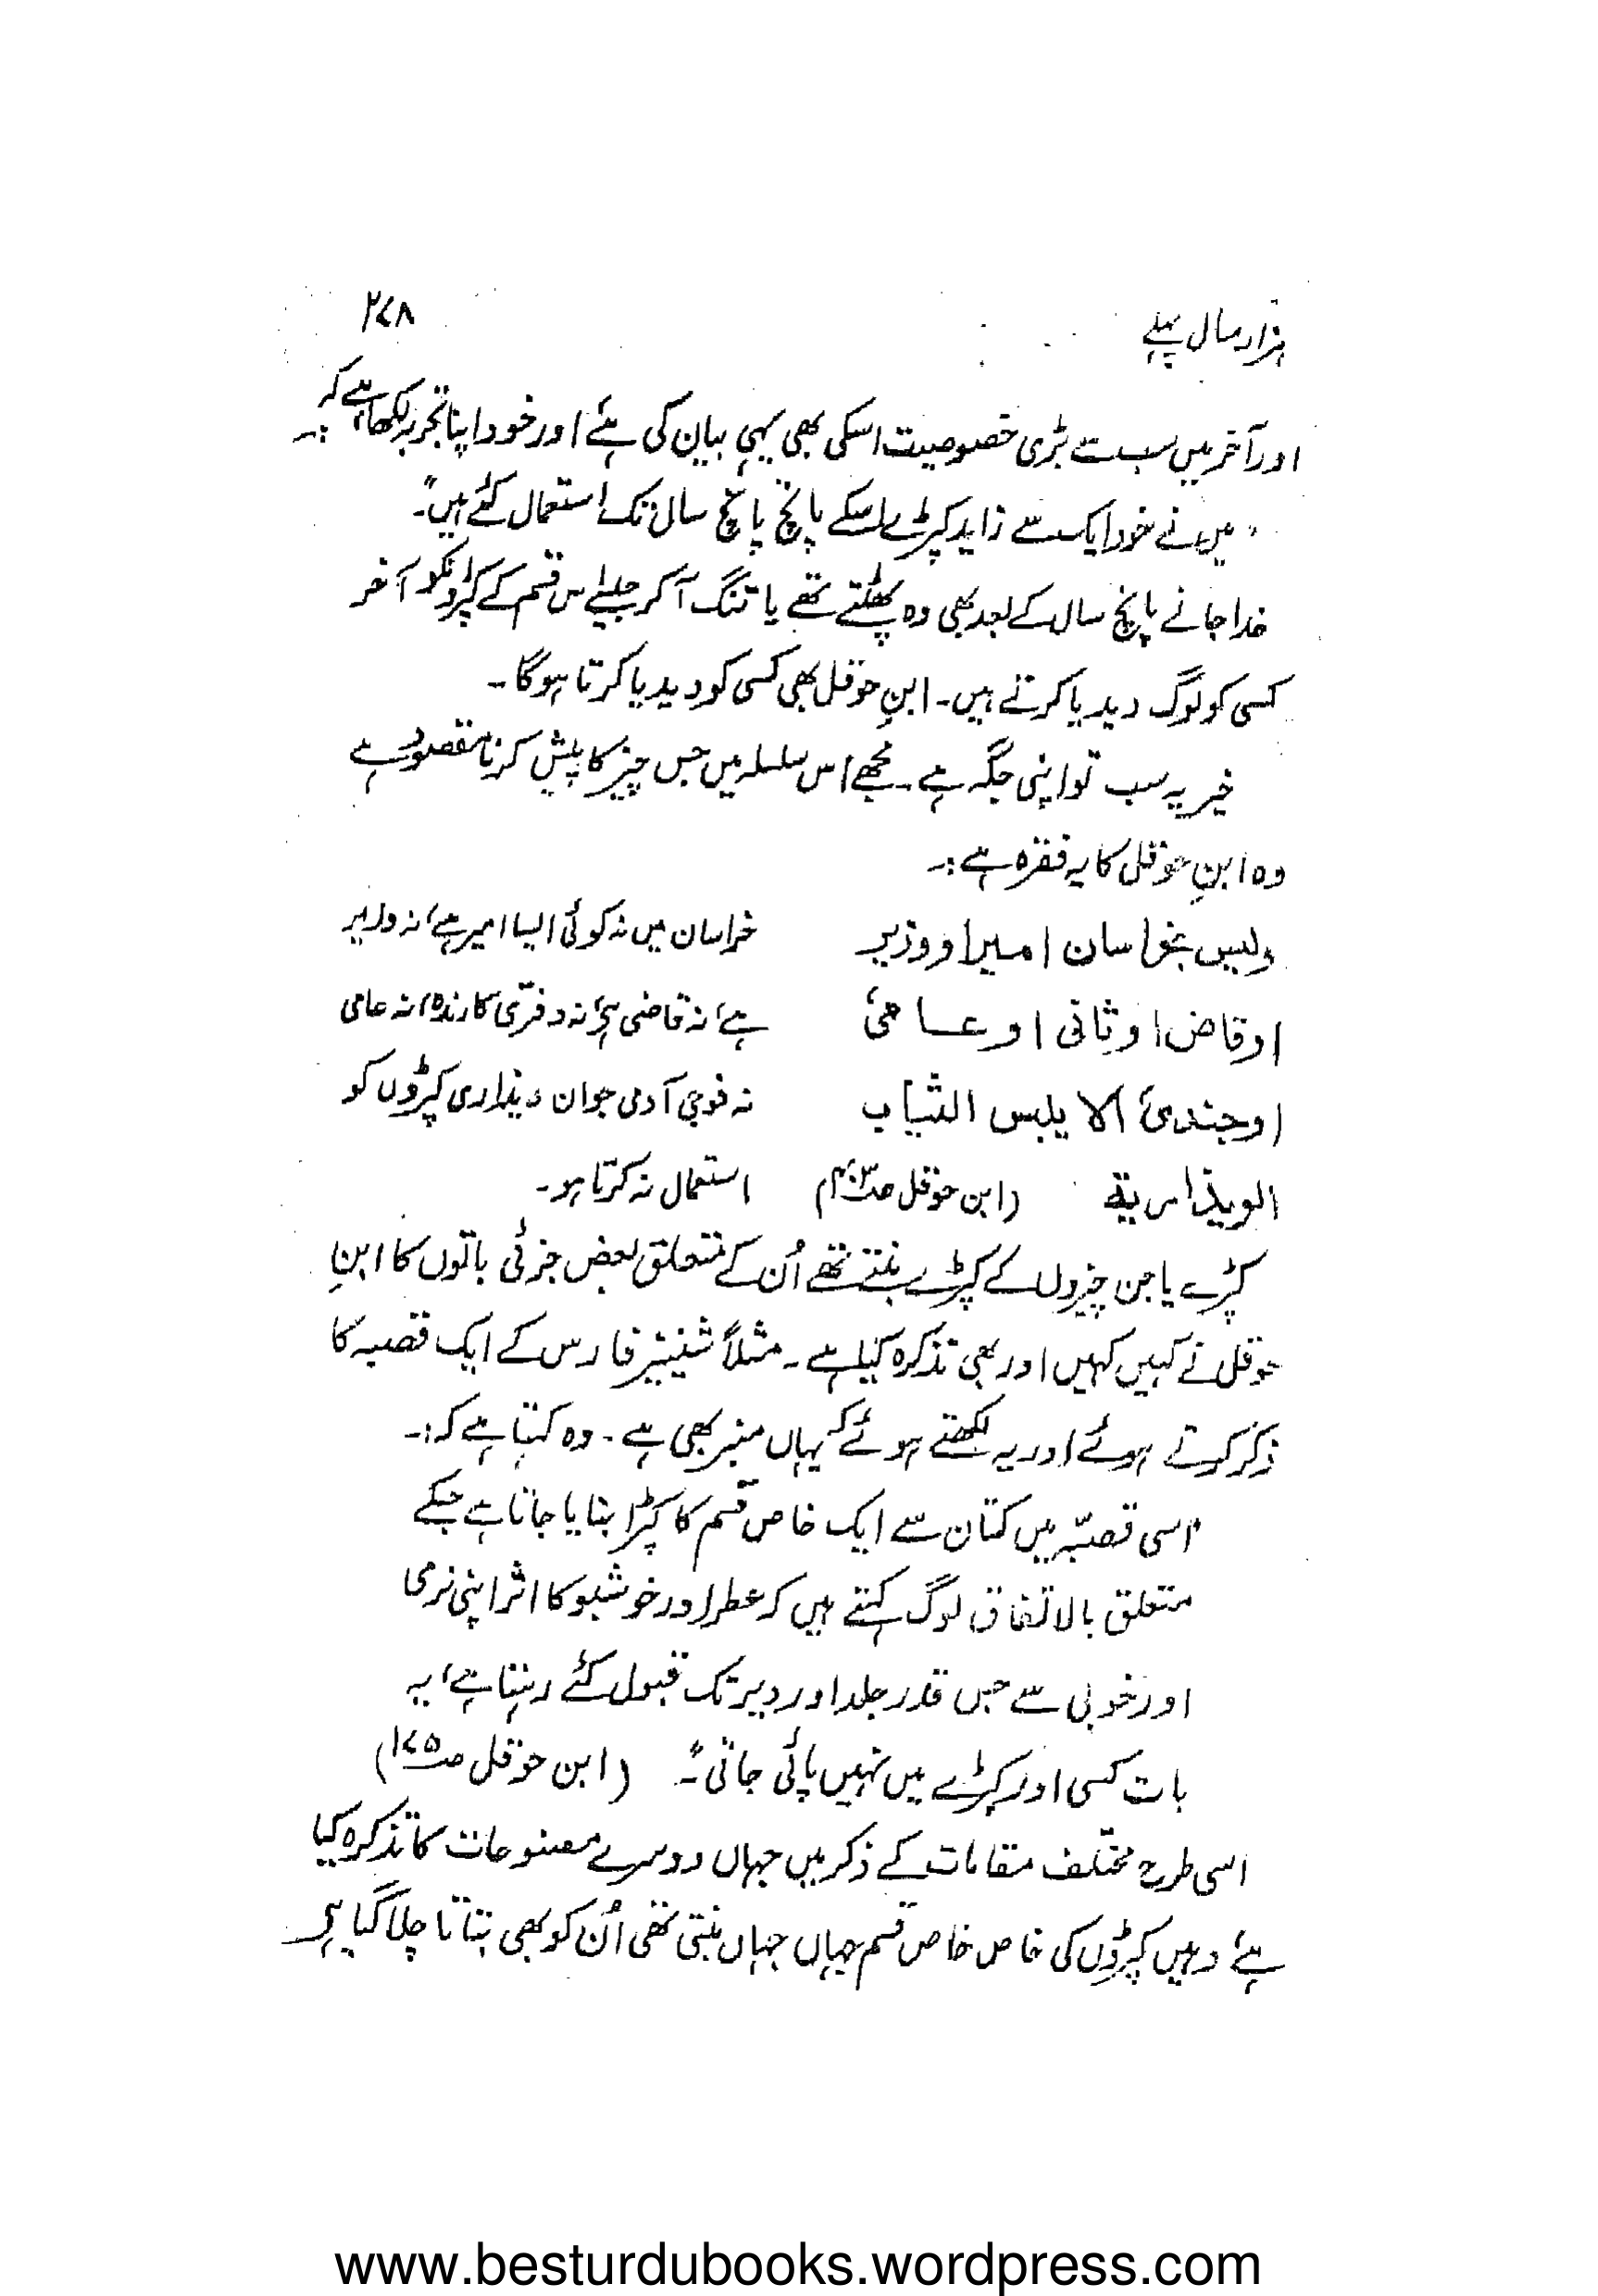 ہزار سال پہلے ۲۷۸
اور آخر میں سب سے بڑی خصوصیت اسکی بھی یہی بیان کی ہے اور خود اپنا تجربہ لکھا ہے کہ :۔
"میں نے خود ایک سے زاید کپڑے اسکے پانچ پانچ سال تک استعمال کئے ہیں"۔
خدا جانے پانچ سال کے بعد بھی وہ پھٹتے تھے یا تنگ آ کر جیسے اس قسم کے کپڑونکو آخر
کسی کو لوگ دیدیا کرتے ہیں۔ ابنِ حوقل بھی کسی کو دیدیا کرتا ہوگا۔
خیر یہ سب تو اپنی جگہ ہے۔ مجھے اس سلسلہ میں جس چیز کا پیش کرنا مقصود ہے
وہ ابنِ حوقل کا یہ فقرہ ہے :۔
ولیس بخراسان امیر او وزیر خراسان میں نہ کوئی ایسا امیر ہے، نہ وزیر
او قاض او ثانی او عامیٔ ہے، نہ قاضی ہے، نہ دفتری کارندہ، نہ عامی
او جندیٔ الا یلبس الثیاب نہ فوجی آدمی جو ان ویذاری کپڑوں کو
الویذاریة (ابن حوقل صـ۴۰۳) استعمال نہ کرتا ہو۔
کپڑے یا جن چیزوں کے کپڑے بنتے تھے اُن کے متعلق بعض جزئی باتوں کا ابنِ
حوقل نے کہیں کہیں اور بھی تذکرہ کیا ہے۔ مثلاً شینیز فارس کے ایک قصبہ کا
ذکر کرتے ہوئے اور یہ لکھتے ہوئے کہ یہاں منبر بھی ہے۔ وہ کہتا ہے کہ :۔
"اسی قصبہ میں کتان سے ایک خاص قسم کا کپڑا بنایا جاتا ہے جسکے
متعلق بالاتفاق لوگ کہتے ہیں کہ عطر اور خوشبو کا اثر اپنی نرمی
اور خوبی سے جس قدر جلد اور دیر تک قبول کئے رہتا ہے، یہ
بات کسی اور کپڑے میں نہیں پائی جاتی"۔ (ابن حوقل صـ۱۷۵)
اسی طرح مختلف مقامات کے ذکر میں جہاں دوسرے مصنوعات کا تذکرہ کیا
ہے، وہیں کپڑوں کی خاص خاص قسم جہاں جہاں بنتی تھی اُن کو بھی بتاتا چلا گیا ہے۔
www.besturdubooks.wordpress.com